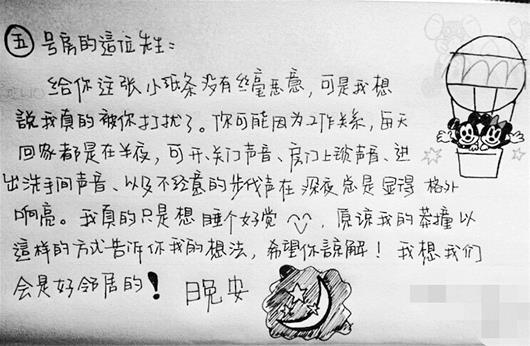 ㊄号房的這位先生:
给你这张小纸条没有丝毫恶意,可是我想
説我真的被你打扰了。你可能因为工作关系,每天
回家都是在半夜,可开、关门声音、房门上锁声音、进
出洗手间声音、以及不经意的步伐声在深夜总是显得格外
响亮。我真的只是想睡个好觉,原谅我的莽撞以
這样的方式告诉你我的想法,希望你諒解!我想我们
会是好邻居的!晚安